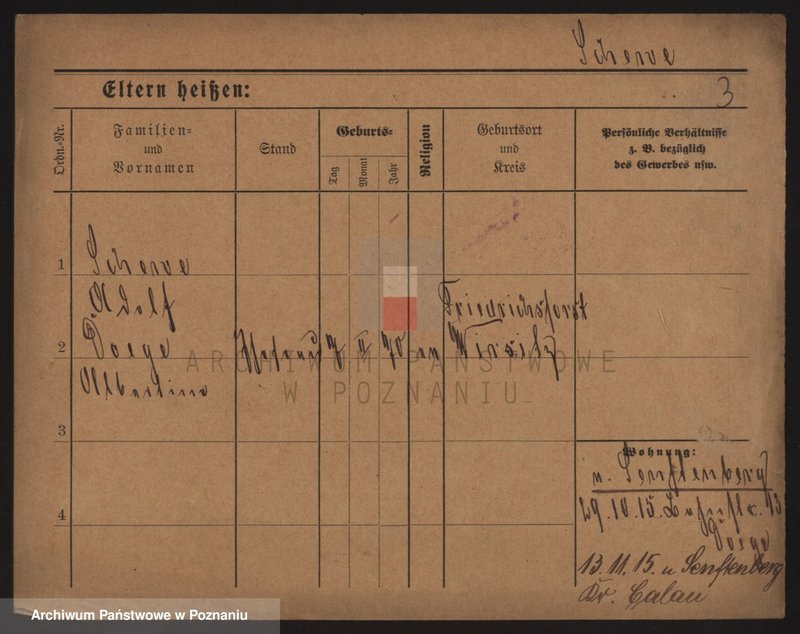 Scherve
Eltern heißen:
3
Ordn.-Nr.
Familien-
und
Vornamen
Stand
Geburts-
Tag
Monat
Jahr
Religion
Geburtsort
und
Kreis
Persönliche Verhältnisse
z. B. bezüglich
des Gewerbes usw.
1
Scherve
Adolf
2
Doege
7 II 70
Friedrichshorst
Wirsitz
Albertine
ARCHIWUM PAŃSTWOWE
W POZNANIU
3
4
Wohnung:
n. Senftenberg
29.10.15. 13
Doege
13.11.15. n Senftenberg
Kr. Calau
Archiwum Państwowe w Poznaniu